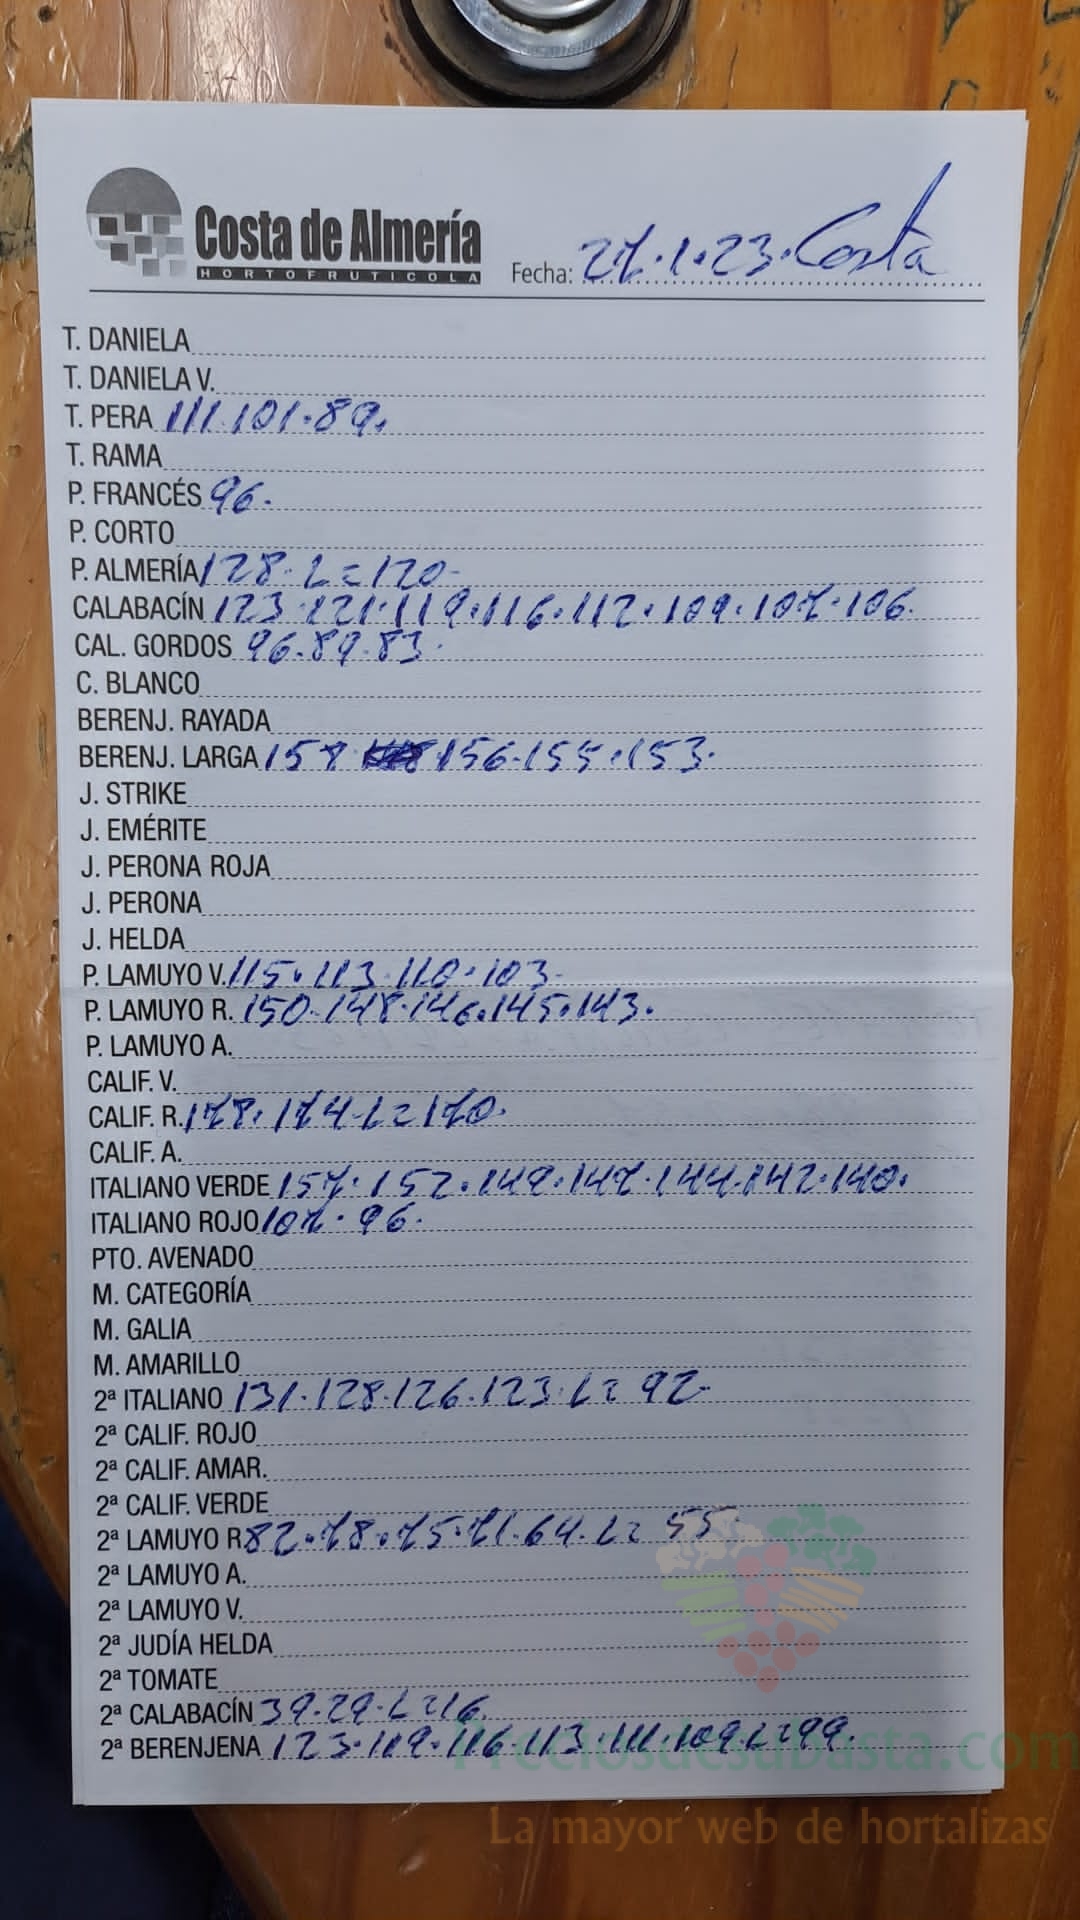 Costa de Almería
HORTOFRUTICOLA
Fecha: 27.1.23.Costa
T. DANIELA
T. DANIELA V.
T. PERA 111.101.89.
T. RAMA
P. FRANCÉS 96.
P. CORTO
P. ALMERÍA 128.L=120-
CALABACÍN 123.121.119.116.112.109.107.106.
CAL. GORDOS 96.89.83.
C. BLANCO
BERENJ. RAYADA
BERENJ. LARGA 156.155.153.
J. STRIKE
J. EMÉRITE
J. PERONA ROJA
J. PERONA
J. HELDA
P. LAMUYO V. 115.113.110.103-
P. LAMUYO R. 150.148.146.145.143.
P. LAMUYO A.
CALIF. V.
CALIF. R. 178.174.L=170.
CALIF. A.
ITALIANO VERDE 157.152.149.147.144.142.140.
ITALIANO ROJO 107.96.
PTO. AVENADO
M. CATEGORÍA
M. GALIA
M. AMARILLO
2ª ITALIANO 131.128.126.123.L=92-
2ª CALIF. ROJO
2ª CALIF. AMAR.
2ª CALIF. VERDE
2ª LAMUYO R 82.78.75.71.64.L=55-
2ª LAMUYO A.
2ª LAMUYO V.
2ª JUDÍA HELDA
2ª TOMATE
2ª CALABACÍN 39.29.L=16.
2ª BERENJENA 123.119.116.113.111.109.L=99.
Preciosdesubasta.com
La mayor web de hortalizas